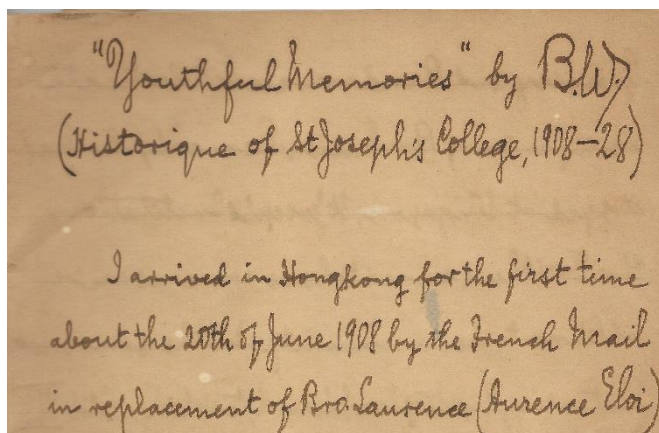 "Youthful Memories" by B.W.
(Historique of St Joseph's College, 1908-28)
I arrived in Hongkong for the first time
about the 20th of June 1908 by the French Mail
in replacement of Bro. Laurence (Aurence Eloi)